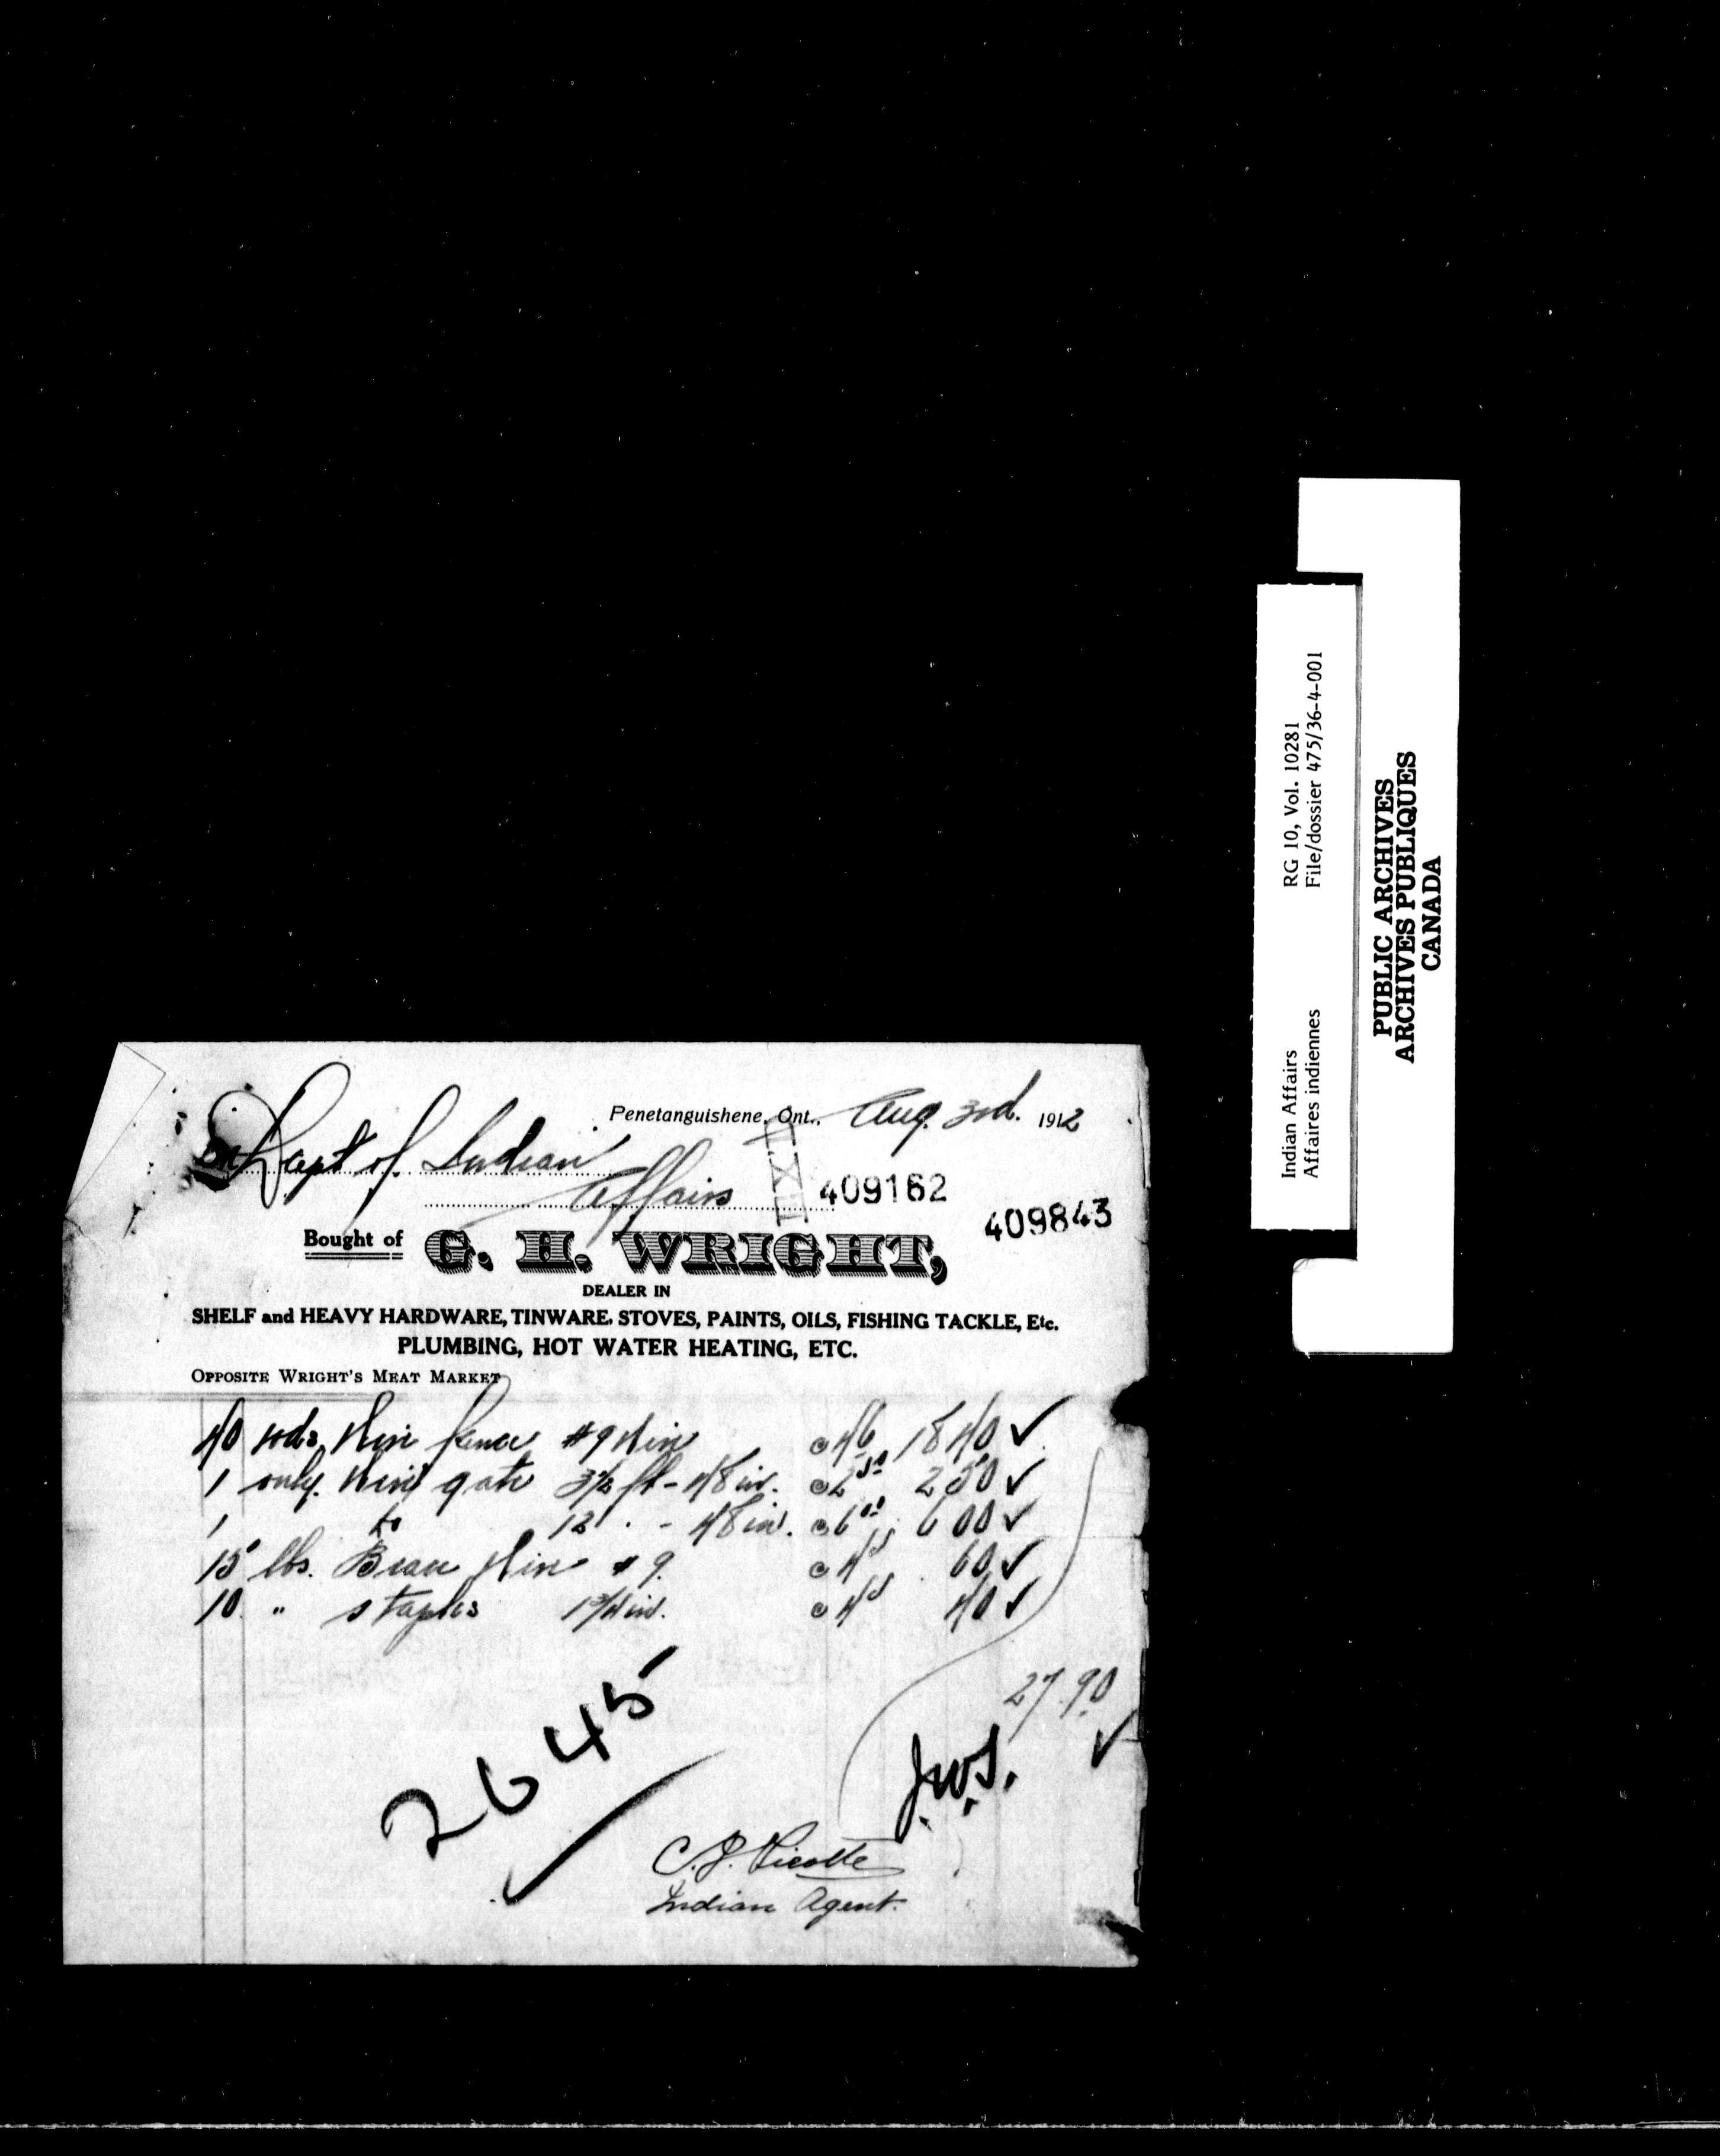 Penetanguishene, Ont., Aug. 3rd. 1912
Dept of Indian
Affairs
409162
409843
Bought of G. H. WRIGHT,
DEALER IN
SHELF and HEAVY HARDWARE, TINWARE, STOVES, PAINTS, OILS, FISHING TACKLE, Etc.
PLUMBING, HOT WATER HEATING, ETC.
OPPOSITE WRIGHT'S MEAT MARKET
40 rods Wire fence #9 Wire @ 46 18 40 ✓
1 only. Wire gate 3½ ft - 48 in. @ 2 50 2 50 ✓
1 do 12 " - 48 in. @ 6 00 6 00 ✓
15 lbs. Brace Wire #9. @ 4 60 ✓
10 " staples 1¾ in. @ 4 40 ✓
27.90
✓
2645
J.W.S.
C. J. Picotte
Indian Agent.
Indian Affairs RG 10, Vol. 10281
Affaires indiennes File/dossier 475/36-4-001
PUBLIC ARCHIVES
ARCHIVES PUBLIQUES
CANADA